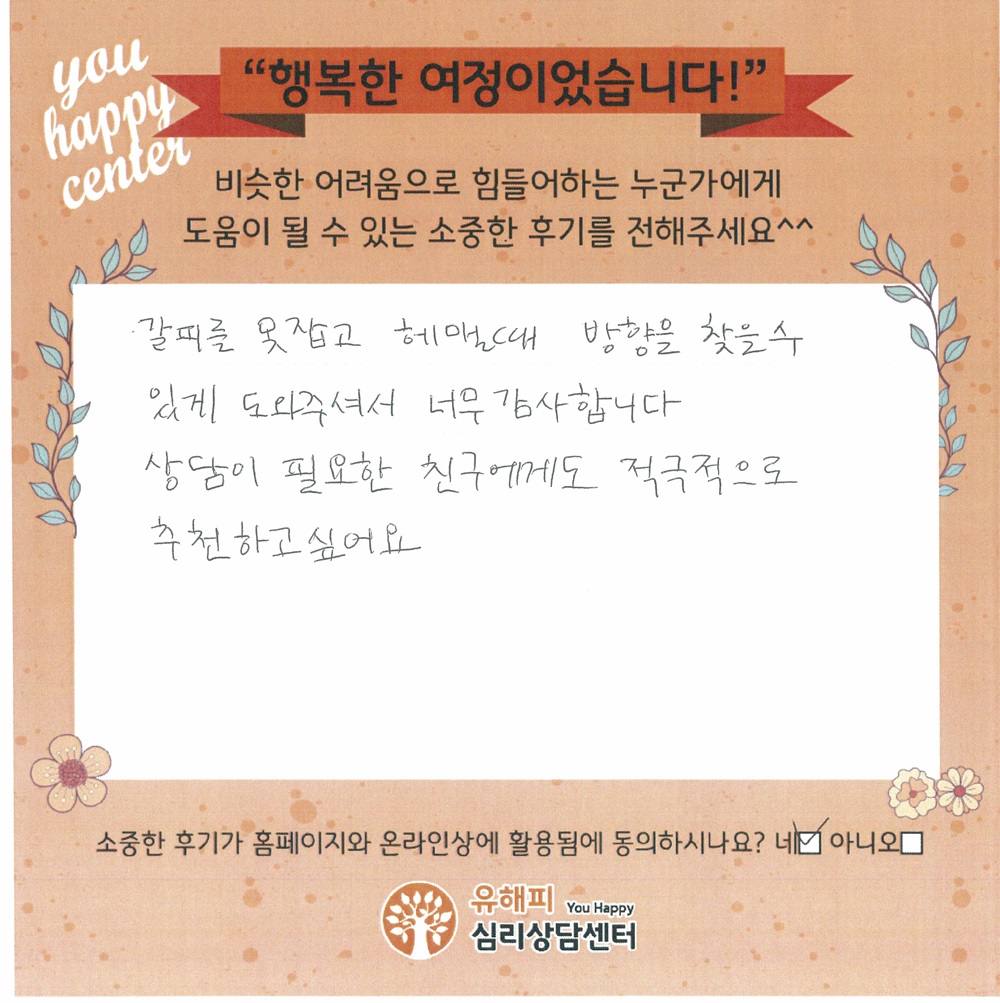 you
happy
center
“행복한 여정이었습니다!”
비슷한 어려움으로 힘들어하는 누군가에게
도움이 될 수 있는 소중한 후기를 전해주세요^^
갈피를 못잡고 헤맬때 방향을 찾을수
있게 도와주셔서 너무 감사합니다
상담이 필요한 친구에게도 적극적으로
추천하고싶어요
소중한 후기가 홈페이지와 온라인상에 활용됨에 동의하시나요? 네 아니오
유해피 You Happy
심리상담센터